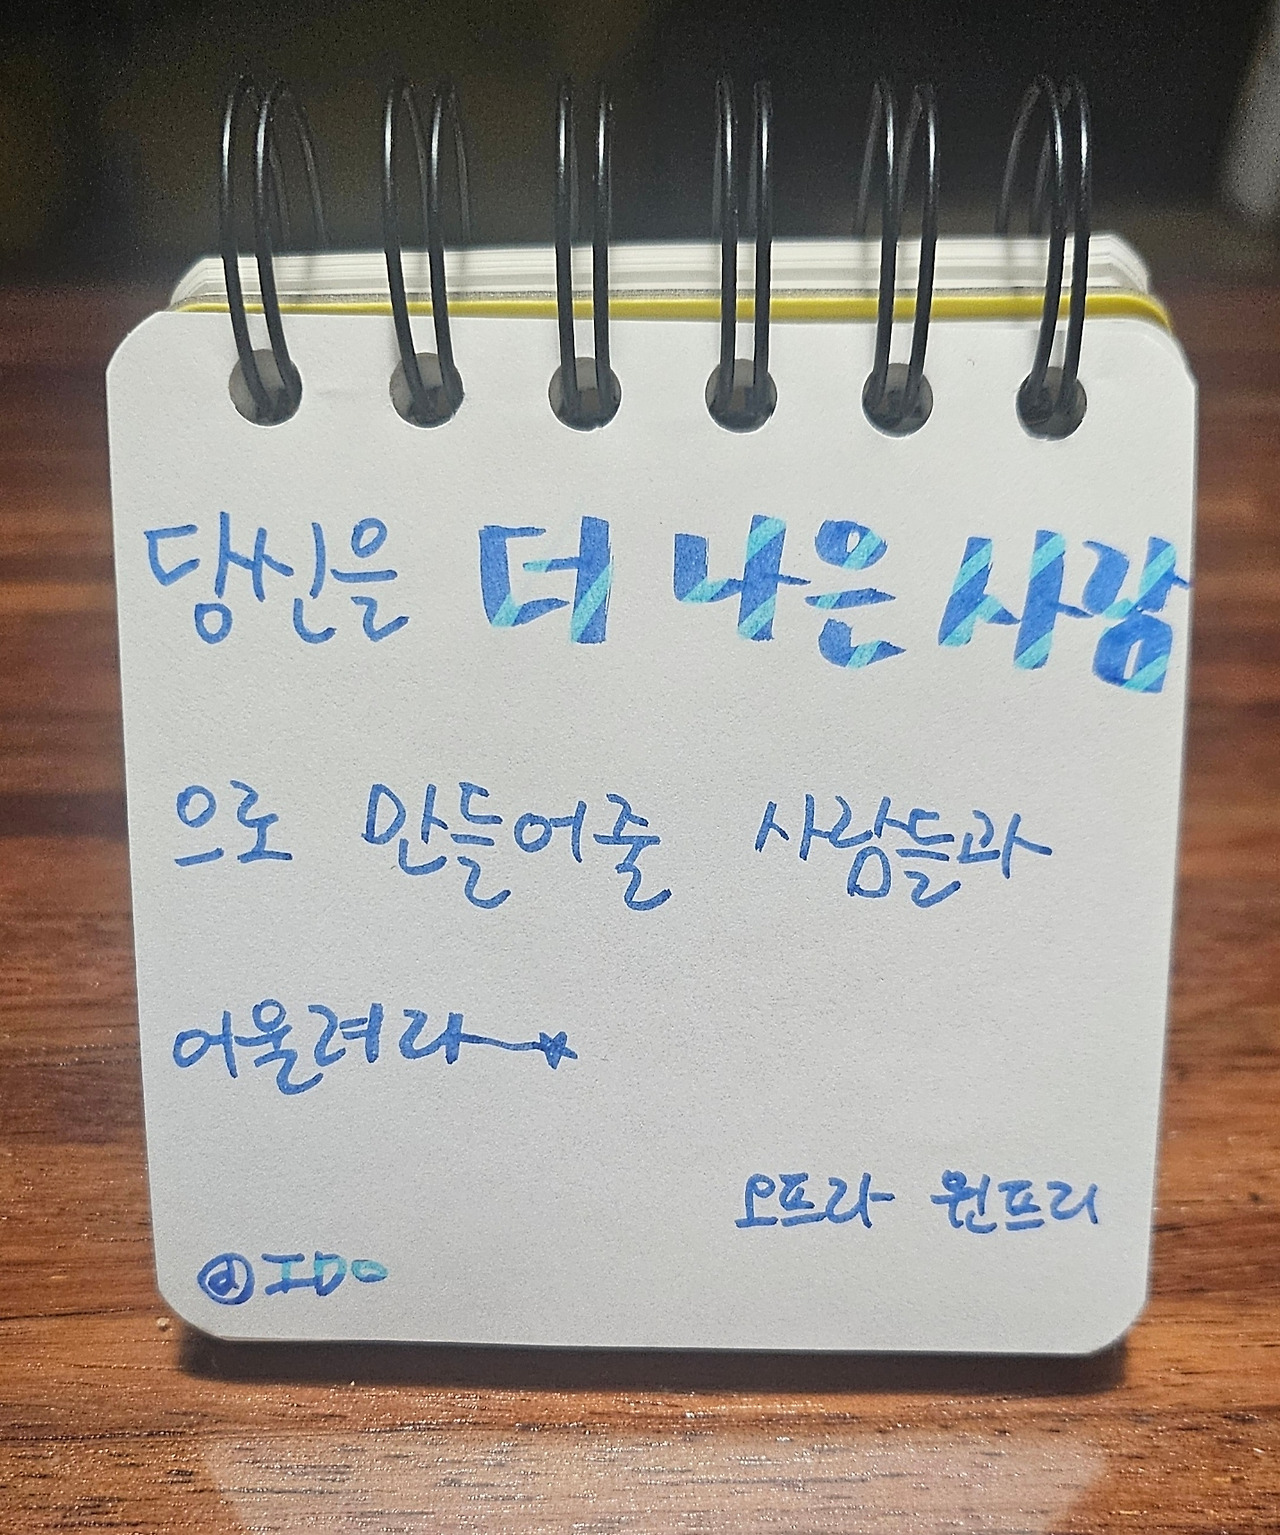 당신을 더 나은 사람
으로 만들어줄 사람들과
어울려라
오프라 윈프리
@IDo